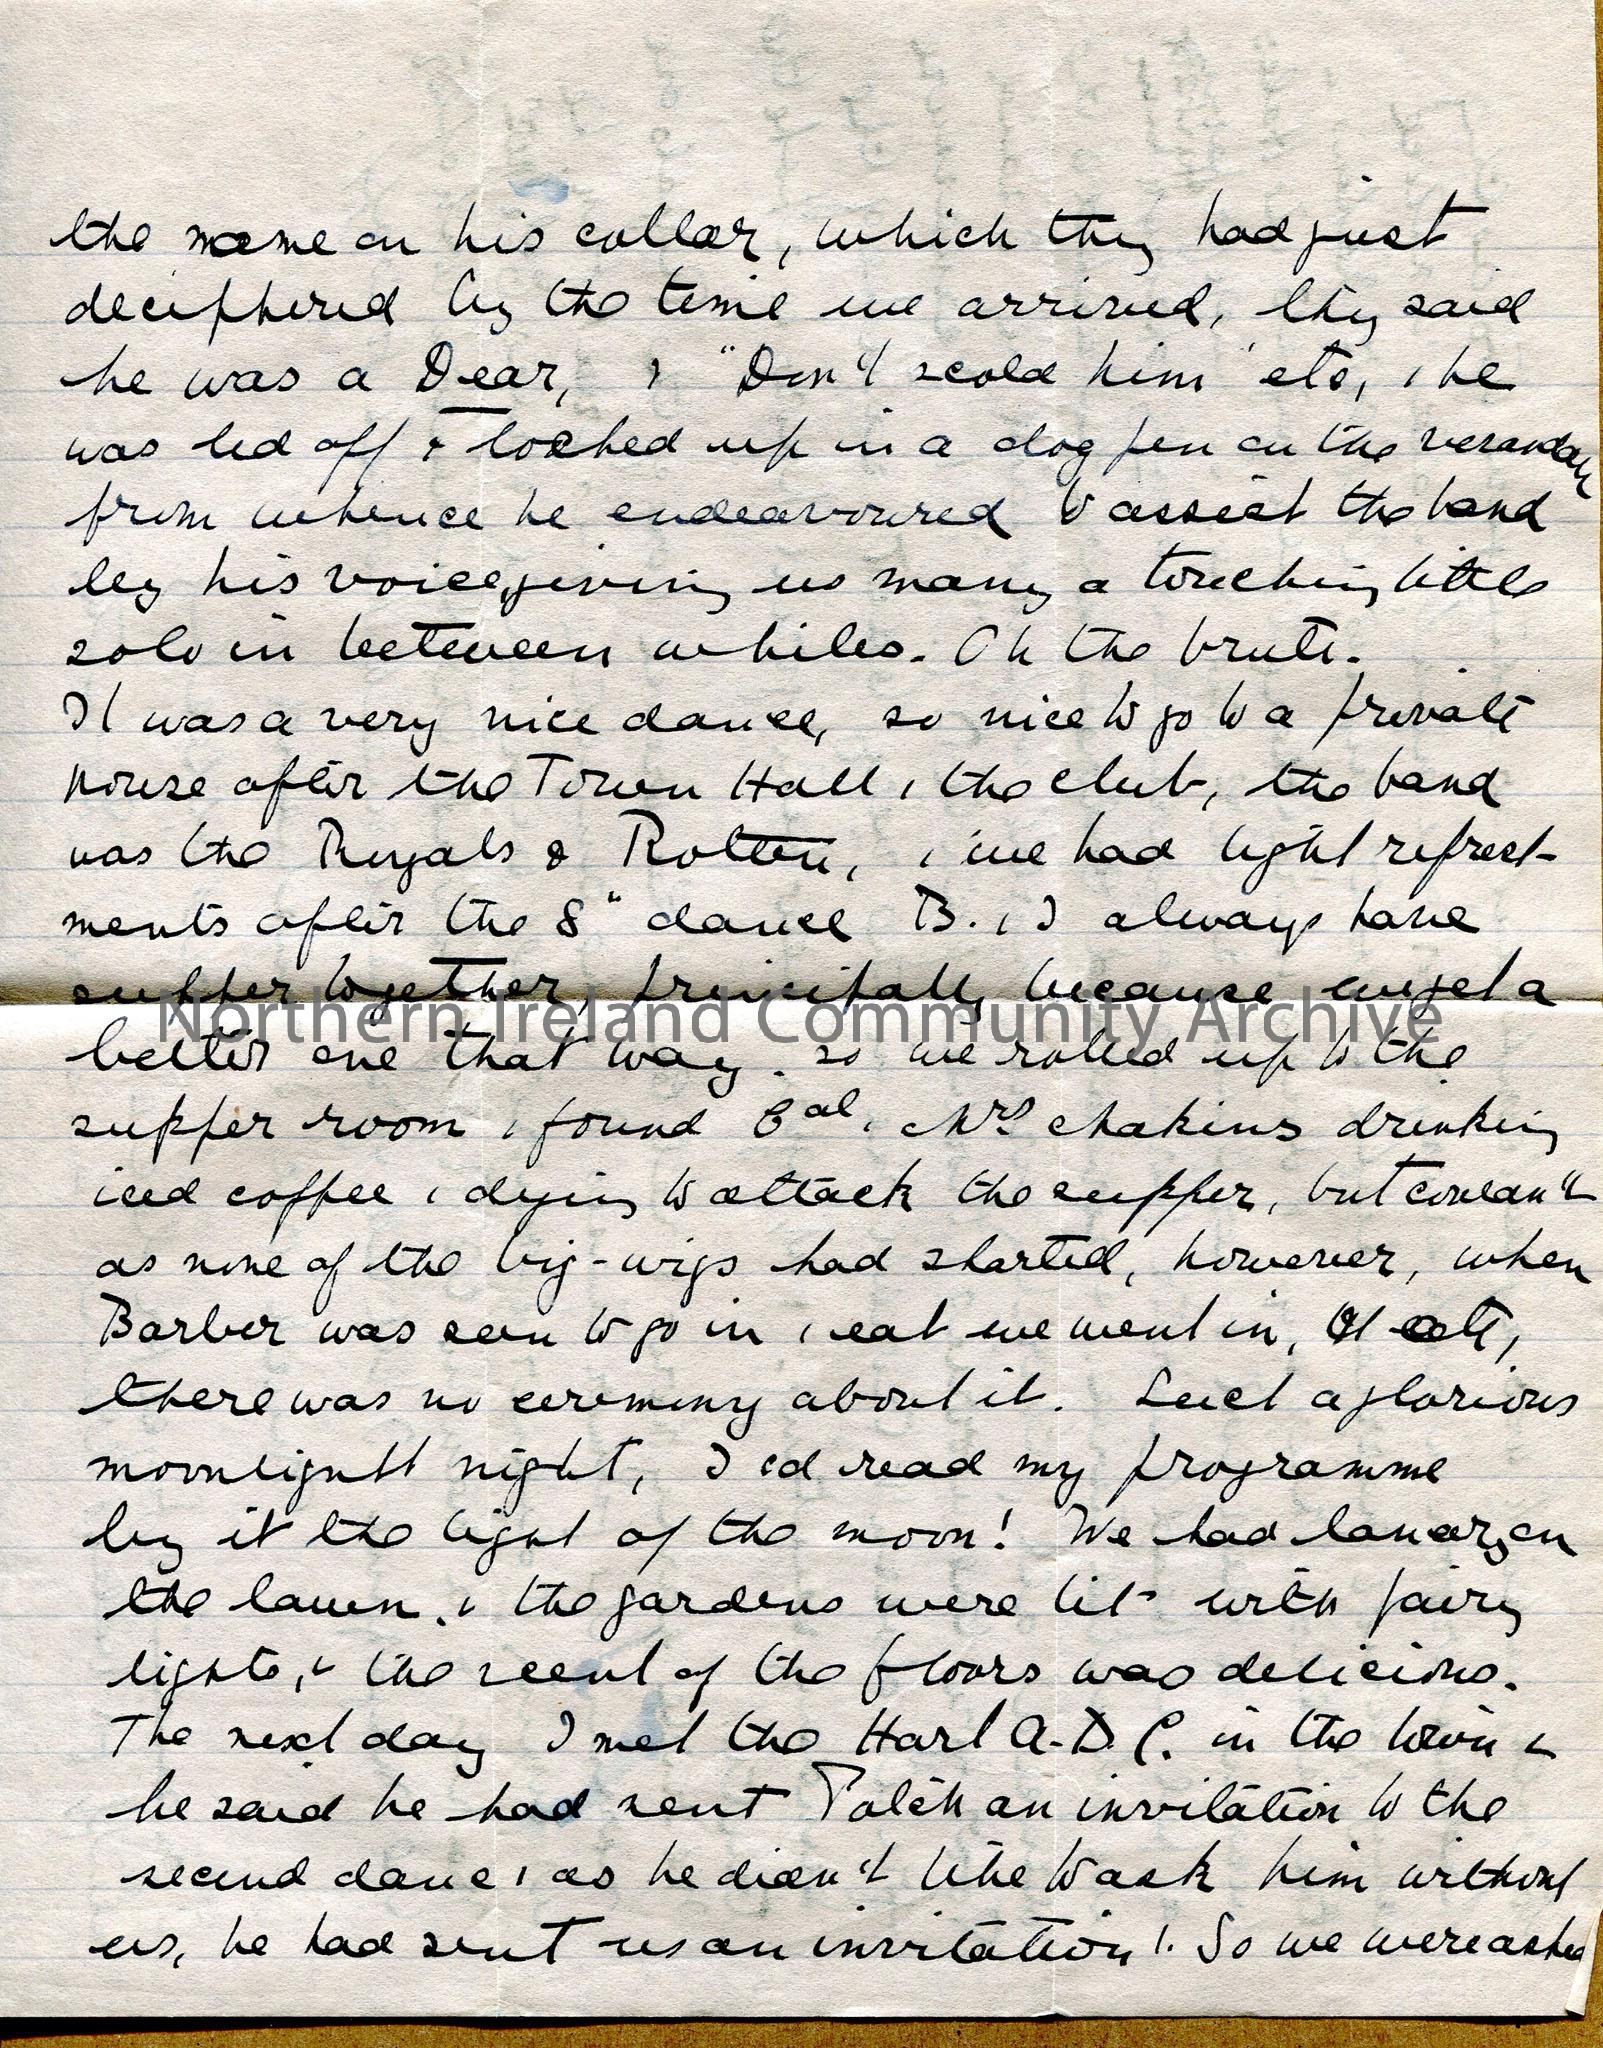 the name on his collar, which they had just
deciphered by the time we arrived, they said
he was a Dear, & "Don't scold him" etc, & he
was led off & locked up in a dog pen on the verandah
from whence he endeavoured to assist the band
by his voice, giving us many a touching little
solo in between whiles. Oh the brute.
It was a very nice dance, so nice to go to a private
house after the Town Hall & the club, the band
was the Royals & Rotten, & we had light refresh-
ments after the 8" dance B. & I always have
supper together, principally because we get a
better one that way. so we rolled up to the
Northern Ireland Community Archive
supper room & found Cal & Mrs Makins drinking
iced coffee & dying to attack the supper, but couldn't
as none of the big-wigs had started, however, when
Barber was seen to go in & eat we went in, & ate,
there was no ceremony about it. Such a glorious
moonlight night, I cd read my programme
by it the light of the moon! We had on
the lawn. & the gardens were lit with fairy
lights, & the scent of the floors was delicious.
The next day I met the Harl A.D.C. in the town &
he said he had sent Patch an invitation to the
second dance, as he didn't like to ask him without
us, he had sent us an invitation!. So we were asked